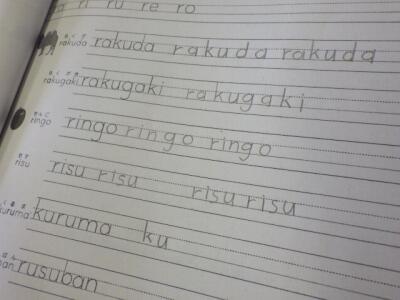 ri ru re ro
rakuda rakuda rakuda rakuda
rakugaki rakugaki rakugaki
ringo ringo ringo ringo
risu risu risu risu risu
kuruma kuruma ku
rusuban